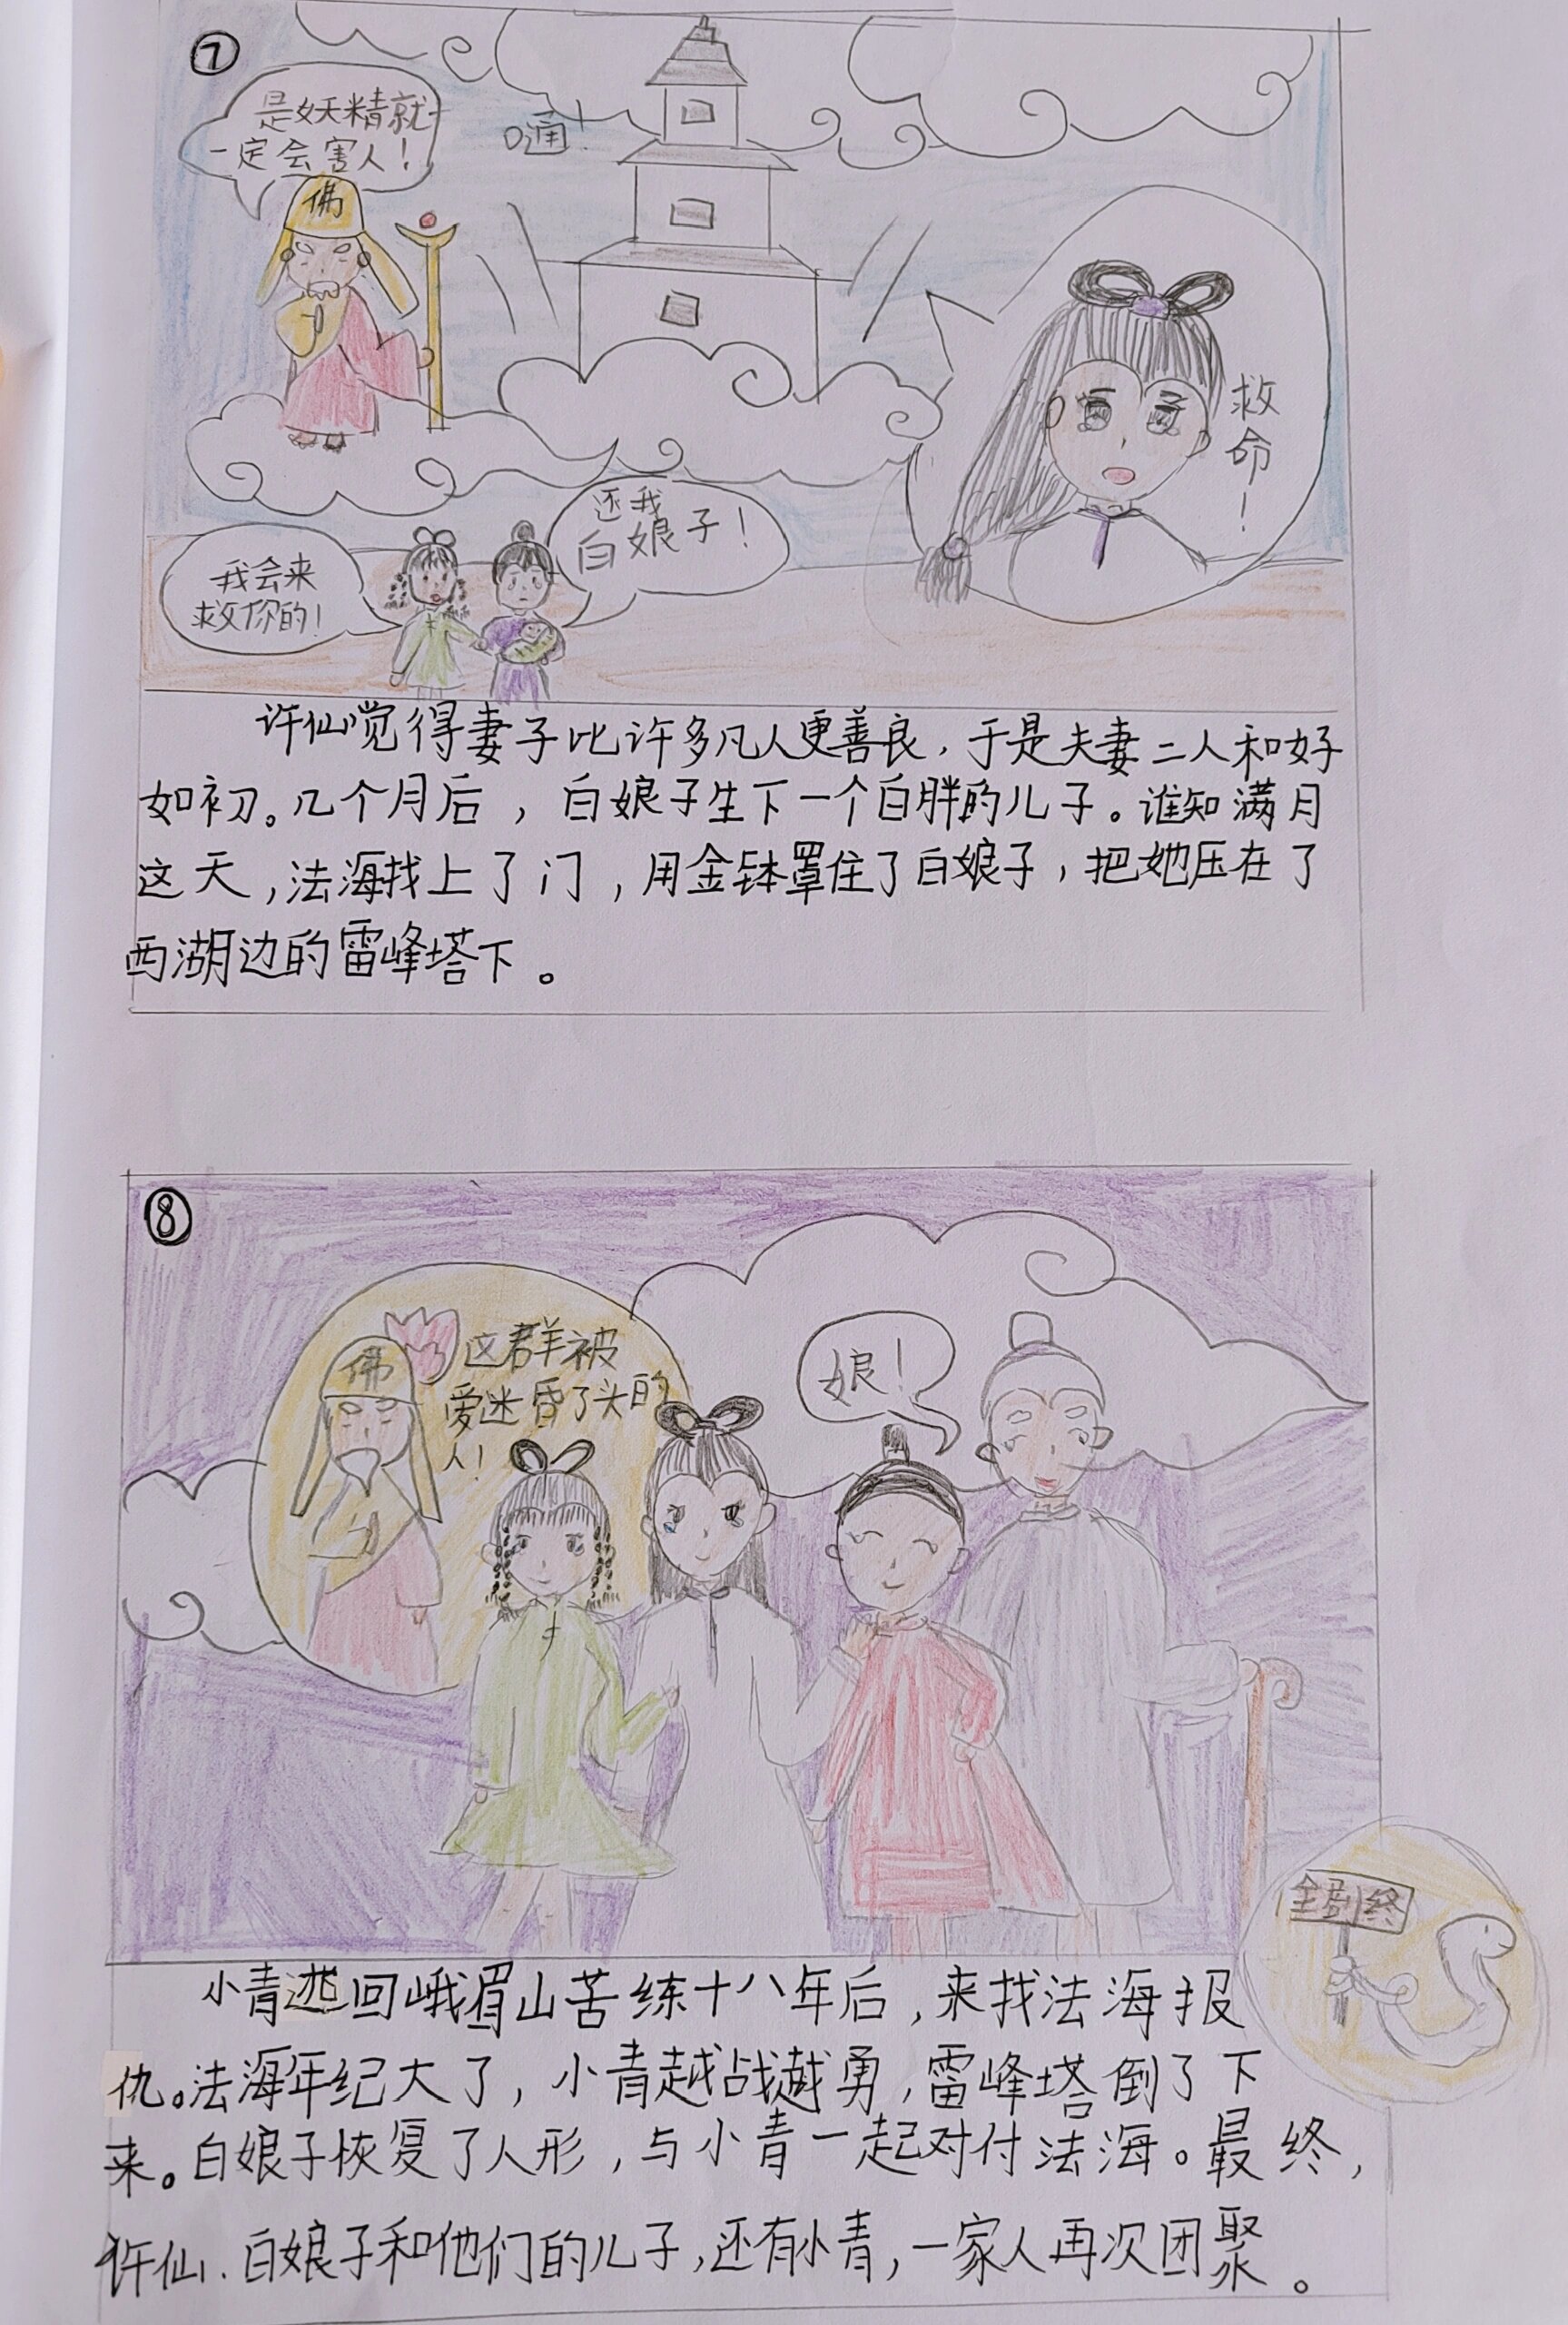 ⑦
是妖精就
一定会害人！
佛
嗵！
救
命
！
还我
白娘子！
我会来
救你的！
许仙觉得妻子比许多凡人更善良，于是夫妻二人和好
如初。几个月后，白娘子生下一个白胖的儿子。谁知满月
这天，法海找上了门，用金钵罩住了白娘子，把她压在了
西湖边的雷峰塔下。
⑧
佛
这群被
爱迷昏了头的
人！
娘！
全剧终
小青逃回峨眉山苦练十八年后，来找法海报
仇。法海年纪大了，小青越战越勇，雷峰塔倒了下
来。白娘子恢复了人形，与小青一起对付法海。最终，
许仙、白娘子和他们的儿子，还有小青，一家人再次团聚。